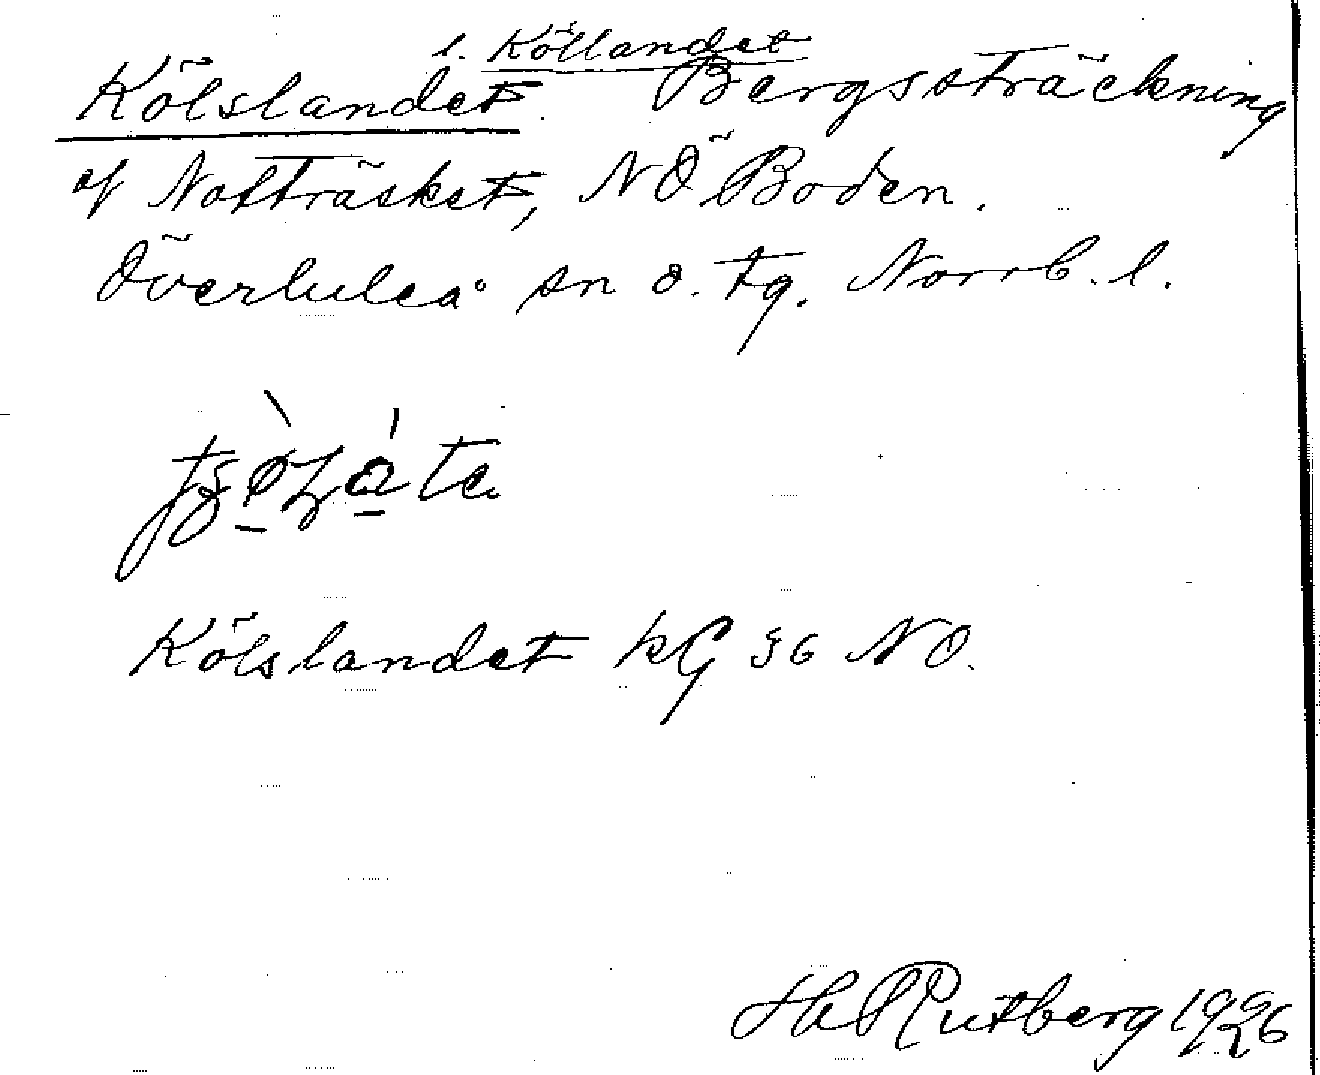 l. Köllandet
Kölslandet. Bergssträckning
af Notträsket, NÖ Boden.
Överluleå sn ö. tg. Norrb. l.
Kölslandet kG 36 NO.
Hl Rutberg 1926